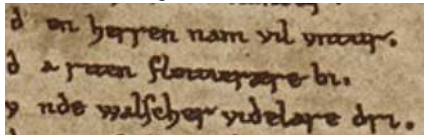 d en herren nam vil vntuur.
d a riten floituerære bi.
v nde walscher videlare dri.